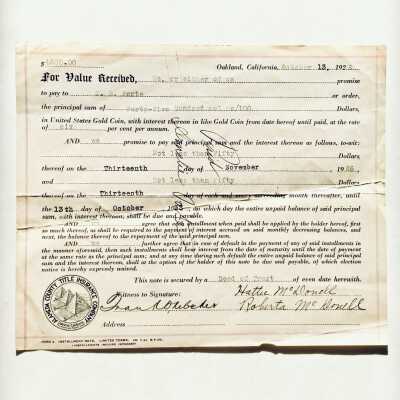 $ 4500.00 Oakland, California, October 13, 192
For Value Received, We, or either of us promise
to pay to or order,
the principal sum of Forty-five Hundred and no/100 Dollars,
in United States Gold Coin, with interest thereon in like Gold Coin from date hereof until paid, at the rate of
six per cent per annum.
AND we promise to pay said principal sum and the interest thereon as follows, to-wit:
Not less than Fifty Dollars,
thereof on the Thirteenth day of November 19
and Not less than Fifty Dollars,
thereof on the Thirteenth day of each and every succeeding month thereafter, until
the 13th day of October on which day the entire unpaid balance of said principal
sum, with interest thereon, shall be due and payable.
AND agree that each of said payments when paid shall be applied by the holder hereof, first
so much thereof, as shall be required to the payment of interest accrued on said monthly decreasing balances, and
next, the balance thereof to the repayment of said principal sum.
AND we further agree that in case of default in the payment of any of said installments
the manner aforesaid, then such installments shall bear interest from the date of maturity until the date of payment
at the same rate as the principal sum; and at any time during such default the entire unpaid balance of said principal
sum and the interest thereon, shall at the option of the holder of this note be due and payable, of which election
notice is hereby expressly waived.
This note is secured by a Deed of Trust of even date herewith.
Witness to Signature:
Hattie McDonell
Roberta McDonell
Address
ALAMEDA COUNTY TITLE INSURANCE COMPANY